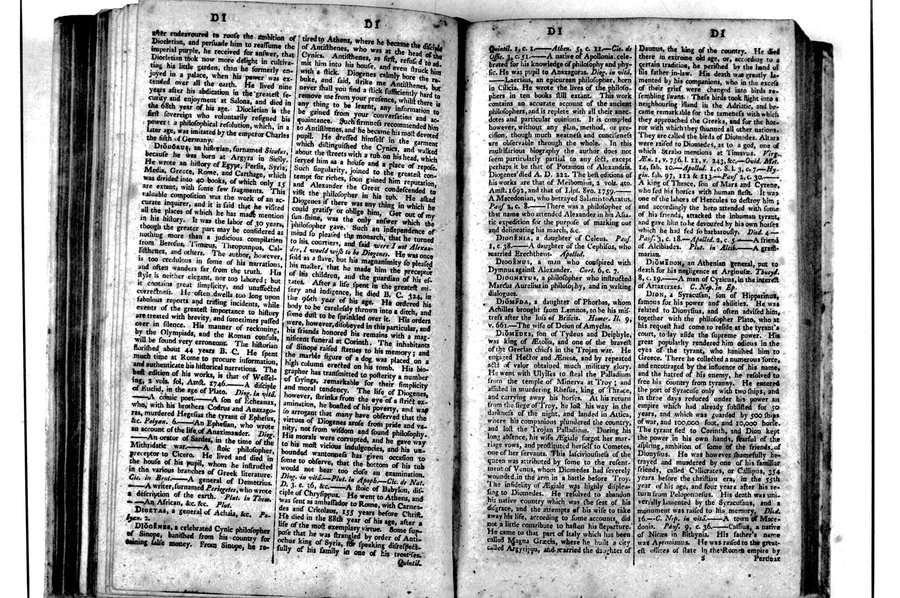 DI
after endeavoured to rouse the ambition of
Diocletian, and persuade him to reassume the
imperial purple, he received for answer, that
Diocletian took now more delight in cultiva-
ting his little garden, than he formerly en-
joyed in a palace, when his power was ex-
tended over all the earth. He lived nine
years after his abdication in the greatest se-
curity and enjoyment at Salona, and died in
the 68th year of his age. Diocletian is the
first sovereign who voluntarily resigned his
power: a philosophical resolution, which, in a
later age, was imitated by the emperor Charles
the fifth of Germany.
DIODORUS, an historian, surnamed Siculus,
because he was born at Argyra in Sicily.
He wrote an history of Egypt, Persia, Syria,
Media, Greece, Rome, and Carthage, which
was divided into 40 books, of which only 15
are extant, with some few fragments. This
valuable composition was the work of an ac-
curate inquirer, and it is said that he visited
all the places of which he has made mention
in his history. It was the labor of 30 years,
though the greater part may be considered as
nothing more than a judicious compilation
from Berosus, Timæus, Theopompus, Cal-
listhenes, and others. The author, however,
is too credulous in some of his narrations,
and often wanders far from the truth. His
style is neither elegant, nor too labored; but
it contains great simplicity, and unaffected
correctness. He often dwells too long upon
fabulous reports and trifling incidents, while
events of the greatest importance to history
are treated with brevity, and sometimes passed
over in silence. His manner of reckoning,
by the Olympiads, and the Roman consuls,
will be found very erroneous. The historian
florished about 44 years B. C. He spent
much time at Rome to procure information,
and authenticate his historical narrations. The
best edition of his works, is that of Wessel-
ing, 2 vols. fol. Amst. 1746.——A disciple
of Euclid, in the age of Plato. Diog. in vitâ.
——A comic poet.——A son of Echeanax,
who, with his brothers Codrus and Anaxago-
ras, murdered Hegesias the tyrant of Ephesus,
&c. Polyæn. 6.——An Ephesian, who wrote
an account of the life of Anaximander. Diog.
——An orator of Sardes, in the time of the
Mithridatic war.——A stoic philosopher,
preceptor to Cicero. He lived and died in
the house of his pupil, whom he instructed
in the various branches of Greek literature.
Cic. de Brut.——A general of Demetrius.
——A writer, surnamed Periegetes, who wrote
a description of the earth. Plut. in Them.
——An African, &c. &c. Plut.
DIOETAS, a general of Achaia, &c. Po-
lyæn. 2.
DIOGENES, a celebrated Cynic philosopher
of Sinope, banished from his country for
coining false money. From Sinope, he re-
DI
tired to Athens, where he became the disciple
of Antisthenes, who was at the head of the
Cynics. Antisthenes, at first, refused to ad-
mit him into his house, and even struck him
with a stick. Diogenes calmly bore the re-
buke, and said, strike me Antisthenes, but
never shall you find a stick sufficiently hard to
remove me from your presence, whilst there is
any thing to be learnt, any information to
be gained from your conversation and ac-
quaintance. Such firmness recommended him
to Antisthenes, and he became his most devoted
pupil. He dressed himself in the garment
which distinguished the Cynics, and walked
about the streets with a tub on his head, which
served him as a house and a place of repose.
Such singularity, joined to the greatest con-
tempt for riches, soon gained him reputation,
and Alexander the Great condescended to
visit the philosopher in his tub. He asked
Diogenes if there was any thing in which he
could gratify or oblige him, Get out of my
sun-shine, was the only answer which the
philosopher gave. Such an independence of
mind so pleased the monarch, that he turned
to his courtiers, and said were I not Alexan-
der, I would wish to be Diogenes. He was once
sold as a slave, but his magnanimity so pleased
his master, that he made him the preceptor
of his children, and the guardian of his es-
tates. After a life spent in the greatest mi-
sery and indigence, he died B. C. 324, in
the 96th year of his age. He ordered his
body to be carelessly thrown into a ditch, and
some dust to be sprinkled over it. His orders
were, however, disobeyed in this particular, and
his friends honored his remains with a mag-
nificent funeral at Corinth. The inhabitants
of Sinope raised statues to his memory; and
the marble figure of a dog was placed on a
high column erected on his tomb. His bio-
grapher has transmitted to posterity a number
of sayings, remarkable for their simplicity
and moral tendency. The life of Diogenes,
however, shrinks from the eye of a strict ex-
amination, he boasted of his poverty, and was
so arrogant that many have observed that the
virtues of Diogenes arose from pride and va-
nity, not from wisdom and sound philosophy.
His morals were corrupted, and he gave way
to his most vicious indulgencies, and his un-
bounded wantonness has given occasion to
some to observe, that the bottom of his tub
would not bear too close an examination.
Diog. in vitâ.—Plut. in Apoph.—Cic. de Nat.
D. 3. c. 36, &c.——A stoic of Babylon, dis-
ciple of Chrysippus. He went to Athens, and
was sent as ambassador to Rome, with Carnea-
des and Critolaus, 155 years before Christ.
He died in the 88th year of his age, after a
life of the most exemplary virtue. Some sup-
pose that he was strangled by order of Anti-
ochus king of Syria, for speaking disrespect-
fully of his family in one of his treatises.
Quintil.
DI
Quintil. 1, c. 1.——Athen. 5, c. 11—Cic. de
Offic. 3, c. 51.——A native of Apollonia, cele-
brated for his knowledge of philosophy and phy-
sic. He was pupil to Anaxagoras. Diog. in vitâ.
——Laertius, an epicurean philosopher, born
in Cilicia. He wrote the lives of the philoso-
phers in ten books still extant. This work
contains an accurate account of the ancient
philosophers, and is replete with all their anec-
dotes and particular opinions. It is compiled
however, without any plan, method, or pre-
cision, though much neatness and conciseness
are observable through the whole. In this
multifarious biography the author does not
seem particularly partial to any sect, except
perhaps it be that of Potamon of Alexandria.
Diogenes died A. D. 222. The best editions of
his works are that of Meibomius, 2 vols. 4to.
Amst. 1692, and that of Lips. 8vo. 1759.——
A Macedonian, who betrayed Salamis to Aratus.
Paus. 2, c. 8.——There was a philosopher of
that name who attended Alexander in his Asia-
tic expedition for the purpose of marking out
and delineating his march, &c.
DIOGENIA, a daughter of Celeus. Paus.
1, c. 38.——A daughter of the Cephisus, who
married Erechtheus. Apollod.
DIOGENUS, a man who conspired with
Dymnus against Alexander. Curt. 6, c. 7.
DIOGNETUS, a philosopher who instructed
Marcus Aurelius in philosophy, and in writing
dialogues.
DIOMEDA, a daughter of Phorbas, whom
Achilles brought from Lemnos, to be his mis-
tress after the loss of Briseis. Homer. Il. 9,
v. 661.—The wife of Deion of Amyclas.
DIOMEDES, son of Tydeus and Deiphyle,
was king of Ætolia, and one of the bravest
of the Grecian chiefs in the Trojan war. He
engaged Hector and Æneas, and by repeated
acts of valor obtained much military glory.
He went with Ulysses to steal the Palladium
from the temple of Minerva at Troy; and
assisted in murdering Rhesus, king of Thrace,
and carrying away his horses. At his return
from the siege of Troy, he lost his way in the
darkness of the night, and landed in Attica,
where his companions plundered the country,
and lost the Trojan Palladium. During his
long absence, his wife Ægiale forgot her mar-
riage vows, and prostituted herself to Cometes,
one of her servants. This lasciviousness of the
queen was attributed by some to the resent-
ment of Venus, whom Diomedes had severely
wounded in the arm in a battle before Troy.
The infidelity of Ægiale was highly displea-
sing to Diomedes. He resolved to abandon
his native country which was the seat of his
disgrace, and the attempts of his wife to take
away his life, according to some accounts, did
not a little contribute to hasten his departure.
He came to that part of Italy which has been
called Magna Græcia, where he built a city
called Argyrippa, and married the daughter of
DI
Daunus, the king of the country. He died
there in extreme old age, or, according to a
certain tradition, he perished by the hand of
his father-in-law. His death was greatly la-
mented by his companions, who in the excess
of their grief were changed into birds re-
sembling swans. These birds took flight into a
neighbouring island in the Adriatic, and be-
came remarkable for the tameness with which
they approached the Greeks, and for the hor-
ror with which they shunned all other nations.
They are called the birds of Diomedes. Altars
were raised to Diomedes, as to a god, one of
which Strabo mentions at Timavus. Virg.
Æn. 1, v. 756. l. 11, v. 243, &c.—Ovid. Met.
14. fab. 10.—Apollod. 1, c. 8. l. 3, c. 7.—Hy-
gin. fab. 97, 112 & 113.—Paus. 2, c. 30.——
A king of Thrace, son of Mars and Cyrene,
who fed his horses with human flesh. It was
one of the labors of Hercules to destroy him;
and accordingly the hero attended with some
of his friends, attacked the inhuman tyrant,
and gave him to be devoured by his own horses
which he had fed so barbarously. Diod. 4.—
Paus. 3, c. 18.—Apollod. 2, c. 5.——A friend
of Alcibiades. Plut. in Alcib.——A gram-
marian.
DIOMEDON, an Athenian general, put to
death for his negligence at Arginusæ. Thucyd.
8, c. 19.——A man of Cyzicus, in the interest
of Artaxerxes. C. Nep. in Ep.
DION, a Syracusan, son of Hipparinus,
famous for his power and abilities. He was
related to Dionysius, and often advised him,
together with the philosopher Plato, who at
his request had come to reside at the tyrant's
court, to lay aside the supreme power. His
great popularity rendered him odious in the
eyes of the tyrant, who banished him to
Greece. There he collected a numerous force,
and encouraged by the influence of his name,
and the hatred of his enemy, he resolved to
free his country from tyranny. He entered
the port of Syracuse only with two ships, and
in three days reduced under his power an
empire which had already subsisted for 50
years, and which was guarded by 500 ships
of war, and 100,000 foot, and 10,000 horse.
The tyrant fled to Corinth, and Dion kept
the power in his own hands, fearful of the
aspiring ambition of some of the friends of
Dionysius. He was however shamefully be-
trayed and murdered by one of his familiar
friends, called Callicrates, or Callipus, 354
years before the christian era, in the 55th
year of his age, and four years after his re-
turn from Peloponnesus. His death was uni-
versally lamented by the Syracusans, and a
monument was raised to his memory. Diod.
16.—C. Nep. in vitâ.——A town of Mace-
donia. Paus. 9, c. 30.——Cassius, a native
of Nicæa in Bithynia. His father's name
was Apronianus. He was raised to the great-
est offices of state in the Roman empire by
S
Pertinax